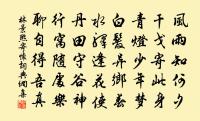 風雨知何夕
干戈寄此身
青燈少年夢
白髮異鄉春
水驛逢花使
丹田守谷神
行窩隨處樂
聊自得吾真
林景熙寄懷詞典網集